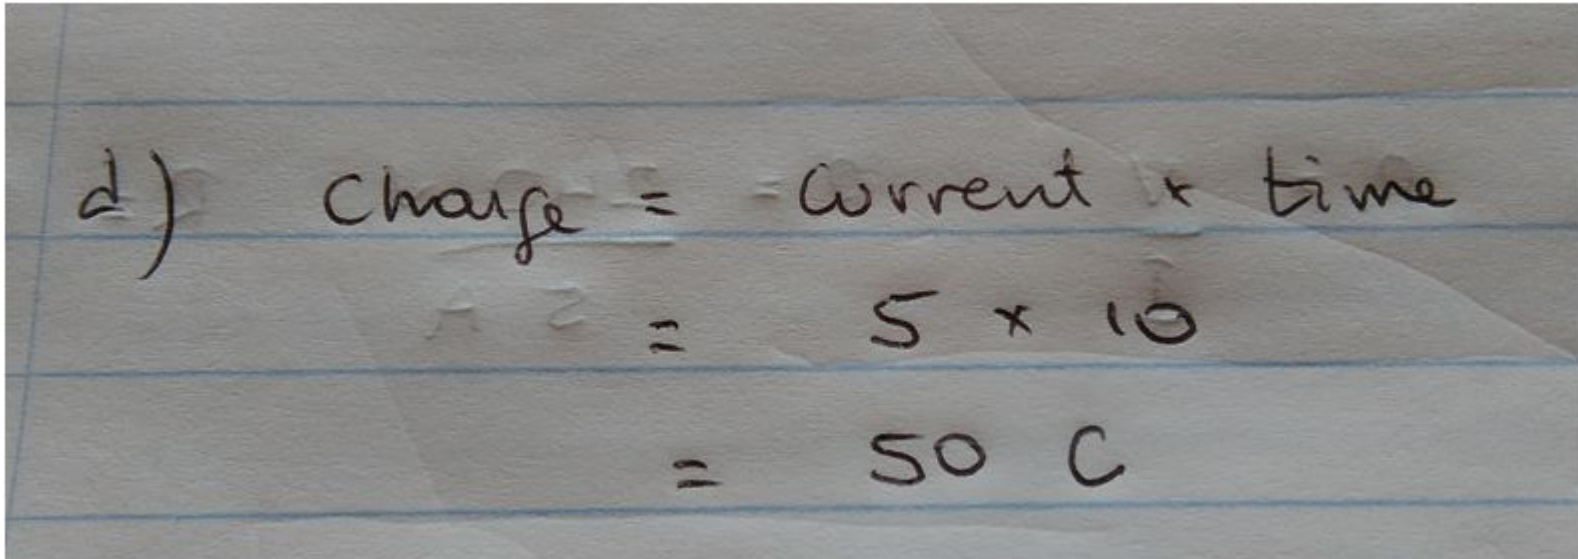 d) Charge = current × time
= 5 × 10
= 50 C